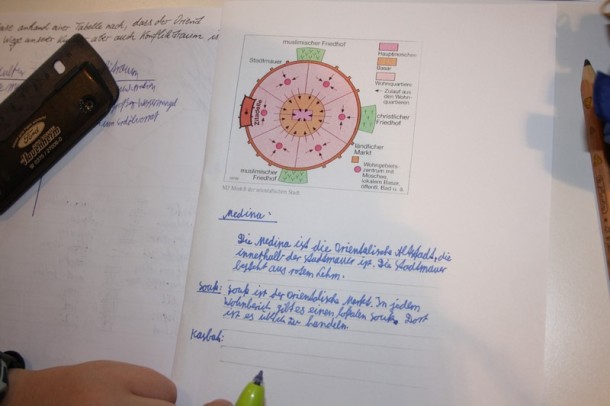 anhand einer Tabelle nach, dass der Orient
Wiege unserer aber auch Konfliktraum is
Ford
muslimischer Friedhof
Stadtmauer
Zitadelle
muslimischer Friedhof
christlicher Friedhof
ländlicher Markt
Hauptmoschee
Basar
Wohnquartiere
Zulauf aus den Wohn-quartieren
Wohngebiets-zentrum mit Moschee, lokalem Basar, öffentl. Bad u. a.
Modell der orientalischen Stadt
Medina:
Die Medina ist die Orientalische Altstadt, die
innerhalb der Stadtmauer ist. Die Stadtmauer
besteht aus rotem Lehm.
Souk: Souk ist der Orientalische Markt. In jedem
Wohnbereich gibt es einen lokalen Souk. Dort
ist es üblich zu handeln
Kasbah: